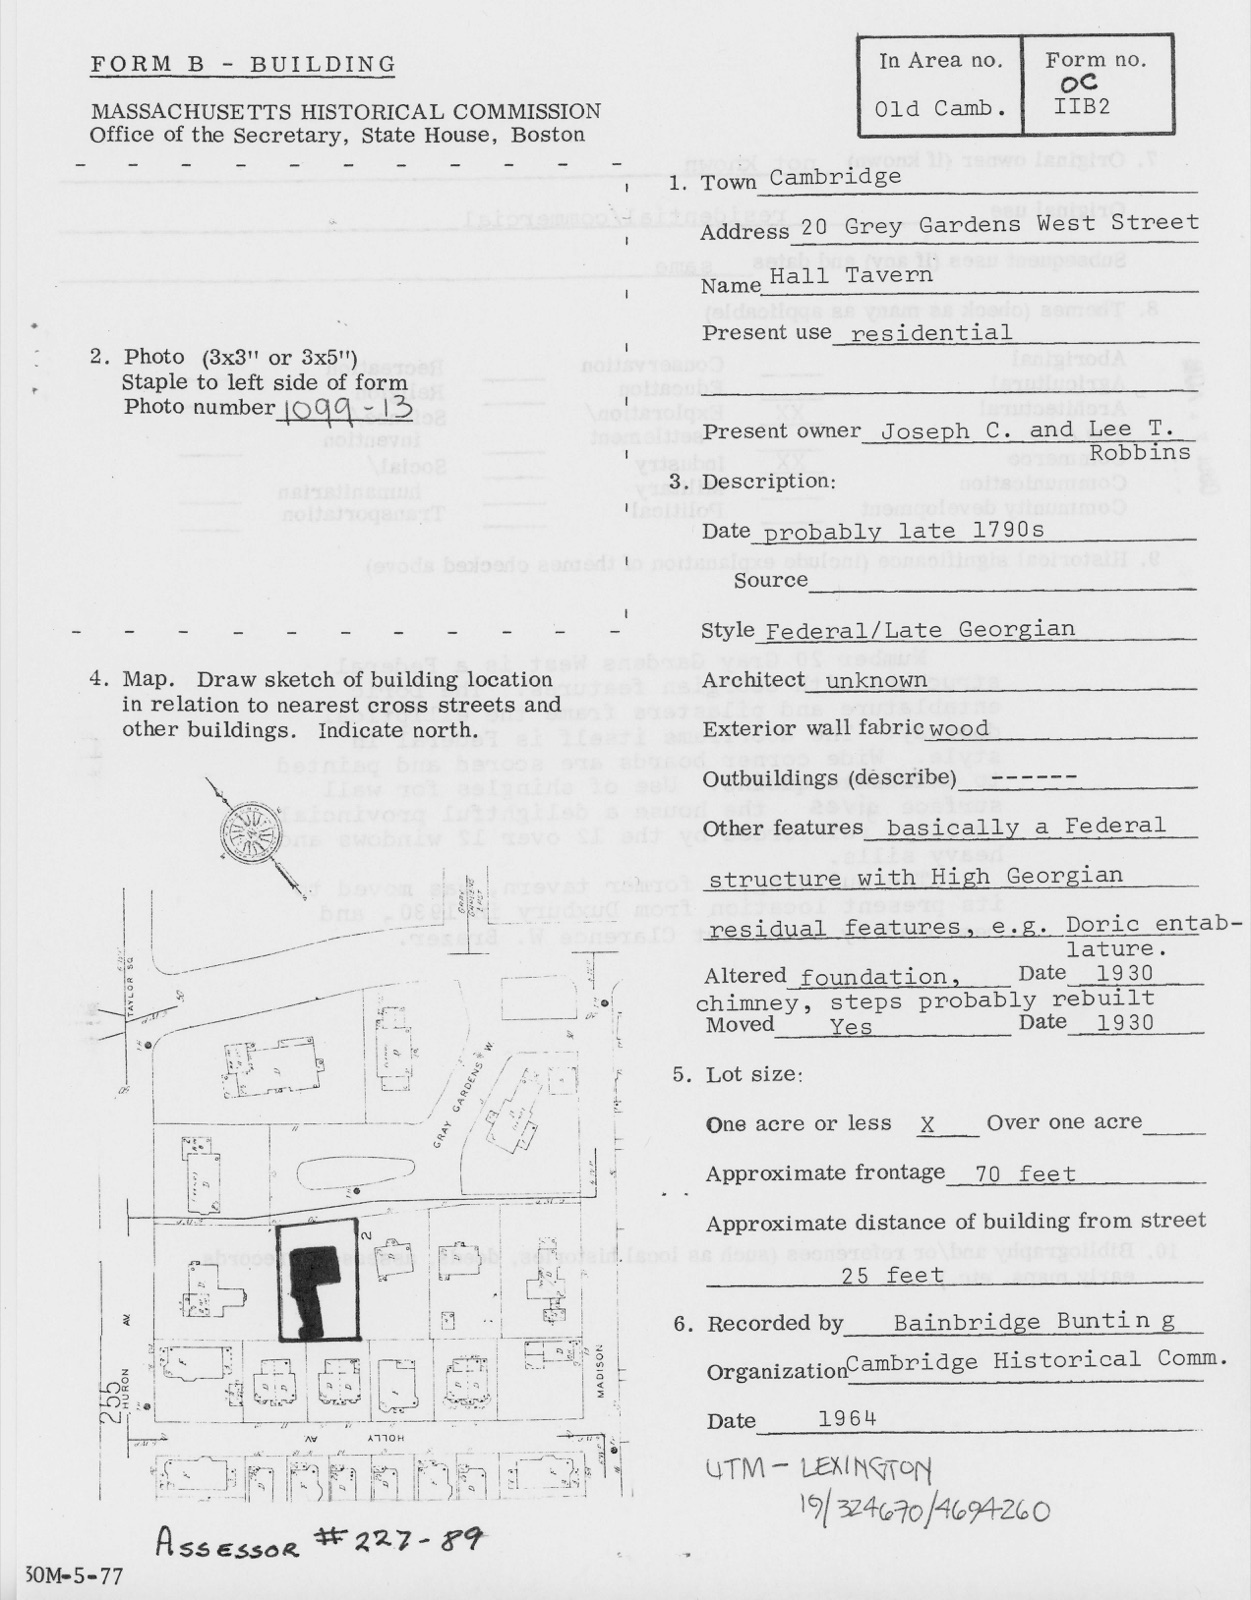 FORM B - BUILDING
MASSACHUSETTS HISTORICAL COMMISSION
Office of the Secretary, State House, Boston
In Area no.
Old Camb.
Form no.
OC
IIB2
1. Town Cambridge
Address 20 Grey Gardens West Street
Name Hall Tavern
Present use residential
Present owner Joseph C. and Lee T.
Robbins
2. Photo (3x3" or 3x5")
Staple to left side of form
Photo number 1099-13
3. Description:
Date probably late 1790s
Source
Style Federal/Late Georgian
Architect unknown
Exterior wall fabric wood
Outbuildings (describe) ------
Other features basically a Federal
structure with High Georgian
residual features, e.g. Doric entab-
lature.
Altered foundation, Date 1930
chimney, steps probably rebuilt
Moved Yes Date 1930
4. Map. Draw sketch of building location
in relation to nearest cross streets and
other buildings. Indicate north.
TAYLOR SQ
GRAY GARDENS W.
2
HURON AV.
255
MADISON
HOLLY AV
5. Lot size:
One acre or less X Over one acre
Approximate frontage 70 feet
Approximate distance of building from street
25 feet
6. Recorded by Bainbridge Buntin g
Organization Cambridge Historical Comm.
Date 1964
UTM - LEXINGTON
19/324670/4694260
ASSESSOR #227-89
30M-5-77